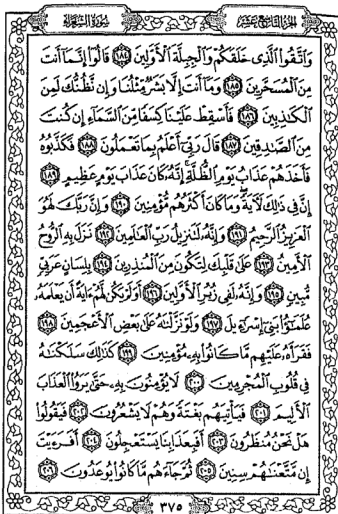 الجزء التاسع عشر
سورة الشعراء
وَاتَّقُوا الَّذِي خَلَقَكُمْ وَالْجِبِلَّةَ الْأَوَّلِينَ ١٨٤ قَالُوا إِنَّمَا أَنتَ
مِنَ الْمُسَحَّرِينَ ١٨٥ وَمَا أَنتَ إِلَّا بَشَرٌ مِّثْلُنَا وَإِن نَّظُنُّكَ لَمِنَ
الْكَاذِبِينَ ١٨٦ فَأَسْقِطْ عَلَيْنَا كِسَفًا مِّنَ السَّمَاءِ إِن كُنتَ
مِنَ الصَّادِقِينَ ١٨٧ قَالَ رَبِّي أَعْلَمُ بِمَا تَعْمَلُونَ ١٨٨ فَكَذَّبُوهُ
فَأَخَذَهُمْ عَذَابُ يَوْمِ الظُّلَّةِ إِنَّهُ كَانَ عَذَابَ يَوْمٍ عَظِيمٍ ١٨٩
إِنَّ فِي ذَٰلِكَ لَآيَةً وَمَا كَانَ أَكْثَرُهُم مُّؤْمِنِينَ ١٩٠ وَإِنَّ رَبَّكَ لَهُوَ
الْعَزِيزُ الرَّحِيمُ ١٩١ وَإِنَّهُ لَتَنزِيلُ رَبِّ الْعَالَمِينَ ١٩٢ نَزَلَ بِهِ الرُّوحُ
الْأَمِينُ ١٩٣ عَلَىٰ قَلْبِكَ لِتَكُونَ مِنَ الْمُنذِرِينَ ١٩٤ بِلِسَانٍ عَرَبِيٍّ
مُّبِينٍ ١٩٥ وَإِنَّهُ لَفِي زُبُرِ الْأَوَّلِينَ ١٩٦ أَوَلَمْ يَكُن لَّهُمْ آيَةً أَن يَعْلَمَهُ
عُلَمَاءُ بَنِي إِسْرَائِيلَ ١٩٧ وَلَوْ نَزَّلْنَاهُ عَلَىٰ بَعْضِ الْأَعْجَمِينَ ١٩٨
فَقَرَأَهُ عَلَيْهِم مَّا كَانُوا بِهِ مُؤْمِنِينَ ١٩٩ كَذَٰلِكَ سَلَكْنَاهُ
فِي قُلُوبِ الْمُجْرِمِينَ ٢٠٠ لَا يُؤْمِنُونَ بِهِ حَتَّىٰ يَرَوُا الْعَذَابَ
الْأَلِيمَ ٢٠١ فَيَأْتِيَهُم بَغْتَةً وَهُمْ لَا يَشْعُرُونَ ٢٠٢ فَيَقُولُوا
هَلْ نَحْنُ مُنظَرُونَ ٢٠٣ أَفَبِعَذَابِنَا يَسْتَعْجِلُونَ ٢٠٤ أَفَرَءَيْتَ
إِن مَّتَّعْنَاهُمْ سِنِينَ ٢٠٥ ثُمَّ جَاءَهُم مَّا كَانُوا يُوعَدُونَ ٢٠٦
٣٧٥